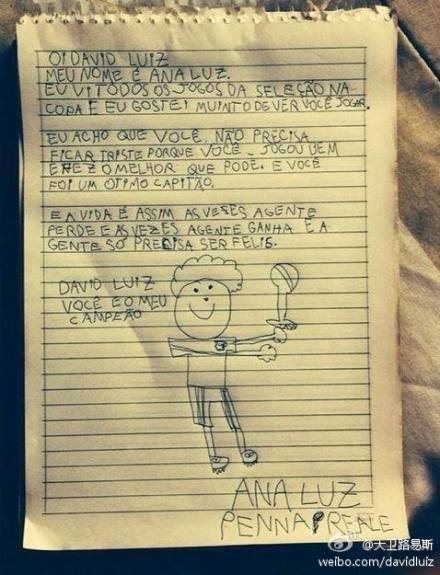 OI DAVID LUIZ
MEU NOME É ANA LUZ.
EU VI TODOS OS JOGOS DA SELEÇÃO NA
COPA E EU GOSTEI MUINTO DE VER VOCÊ JOGAR.
EU ACHO QUE VOCÊ NÃO PRECISA
FICAR TRISTE PORQUE VOCÊ JOGOU BEM
E FEZ O MELHOR QUE PODE. E VOCÊ
FOI UM OTIMO CAPITÃO.
E A VIDA É ASSIM AS VEZES AGENTE
PERDE E AS VEZES AGENTE GANHA E A
GENTE SÓ PRECISA SER FELIS.
DAVID LUIZ
VOCÊ E O MEU
CAMPEÃO
ANA LUZ
PENNA PREALE
@大卫路易斯
weibo.com/davidluiz